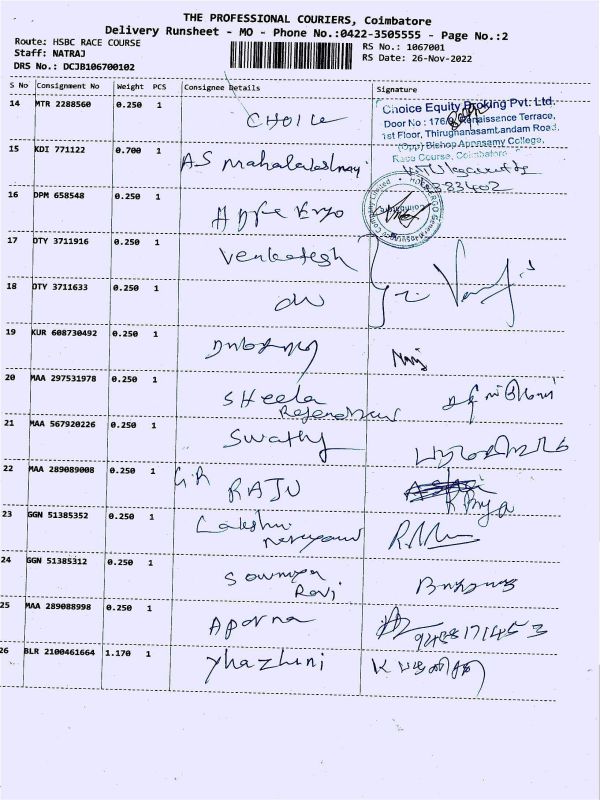 THE PROFESSIONAL COURIERS, Coimbatore
Delivery Runsheet - MO - Phone No.:0422-3505555 - Page No.:2
Route: HSBC RACE COURSE
RS No.: 1067001
Staff: NATRAJ
RS Date: 26-Nov-2022
DRS No.: DCJB106700102
S No Consignment No Weight PCS Consignee Details Signature
14 MTR 2288560 0.250 1 CHOICE
Choice Equity Broking Pvt. Ltd.
Door No : 176/ Renaissance Terrace,
1st Floor, Thirugnanasambandam Road,
(Opp) Bishop Appasamy College,
Race Course, Coimbatore
15 KDI 771122 0.700 1 AS Mahalakshmi
16 DPM 658548 0.250 1
17 DTY 3711916 0.250 1 Venkatesh
18 DTY 3711633 0.250 1
19 KUR 608730492 0.250 1
20 MAA 297531978 0.250 1 Sheela
Rajendran
21 MAA 567920226 0.250 1 Swathy
22 MAA 289089008 0.250 1 G.R RAJU
23 GGN 51385352 0.250 1 Lakshmi
narayanan
24 GGN 51385312 0.250 1 Sowmya
Ravi
25 MAA 289088998 0.250 1 Aparna
9488171453
26 BLR 2100461664 1.170 1 Yhazhini